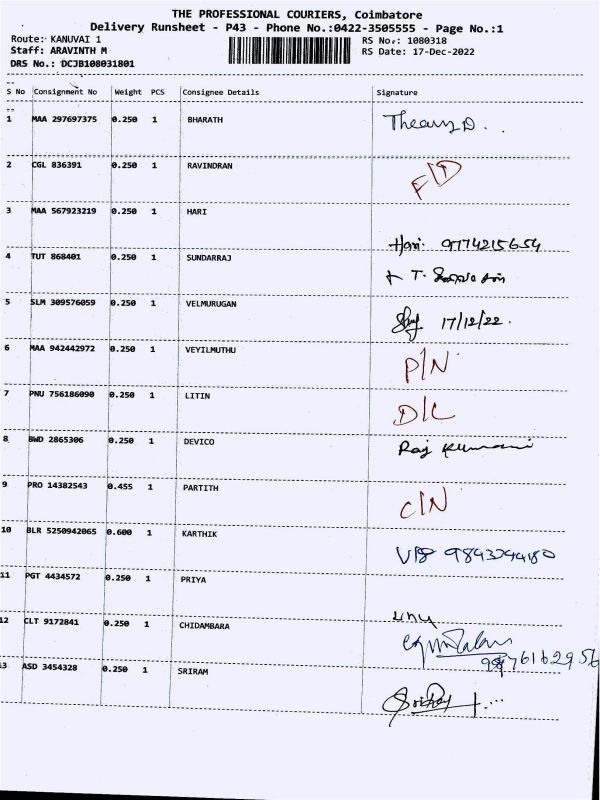 THE PROFESSIONAL COURIERS, Coimbatore
Delivery Runsheet - P43 - Phone No.:0422-3505555 - Page No.:1
Route: KANUVAI 1 RS No.: 1080318
Staff: ARAVINTH M RS Date: 17-Dec-2022
DRS No.: DCJB108031801
S No Consignment No Weight PCS Consignee Details Signature
1 MAA 297697375 0.250 1 BHARATH
2 CGL 836391 0.250 1 RAVINDRAN F/D
3 MAA 567923219 0.250 1 HARI
Hari 9774215654
4 TUT 868401 0.250 1 SUNDARRAJ
5 SLM 309576059 0.250 1 VELMURUGAN
17/12/22.
6 MAA 942442972 0.250 1 VEYILMUTHU P/N
7 PNU 756186090 0.250 1 LITIN D/L
8 BWD 2865306 0.250 1 DEVICO Raj Kumari
9 PRO 14382543 0.455 1 PARTITH C/N
10 BLR 5250942065 0.600 1 KARTHIK
11 PGT 4434572 0.250 1 PRIYA
12 CLT 9172841 0.250 1 CHIDAMBARA
13 ASD 3454328 0.250 1 SRIRAM